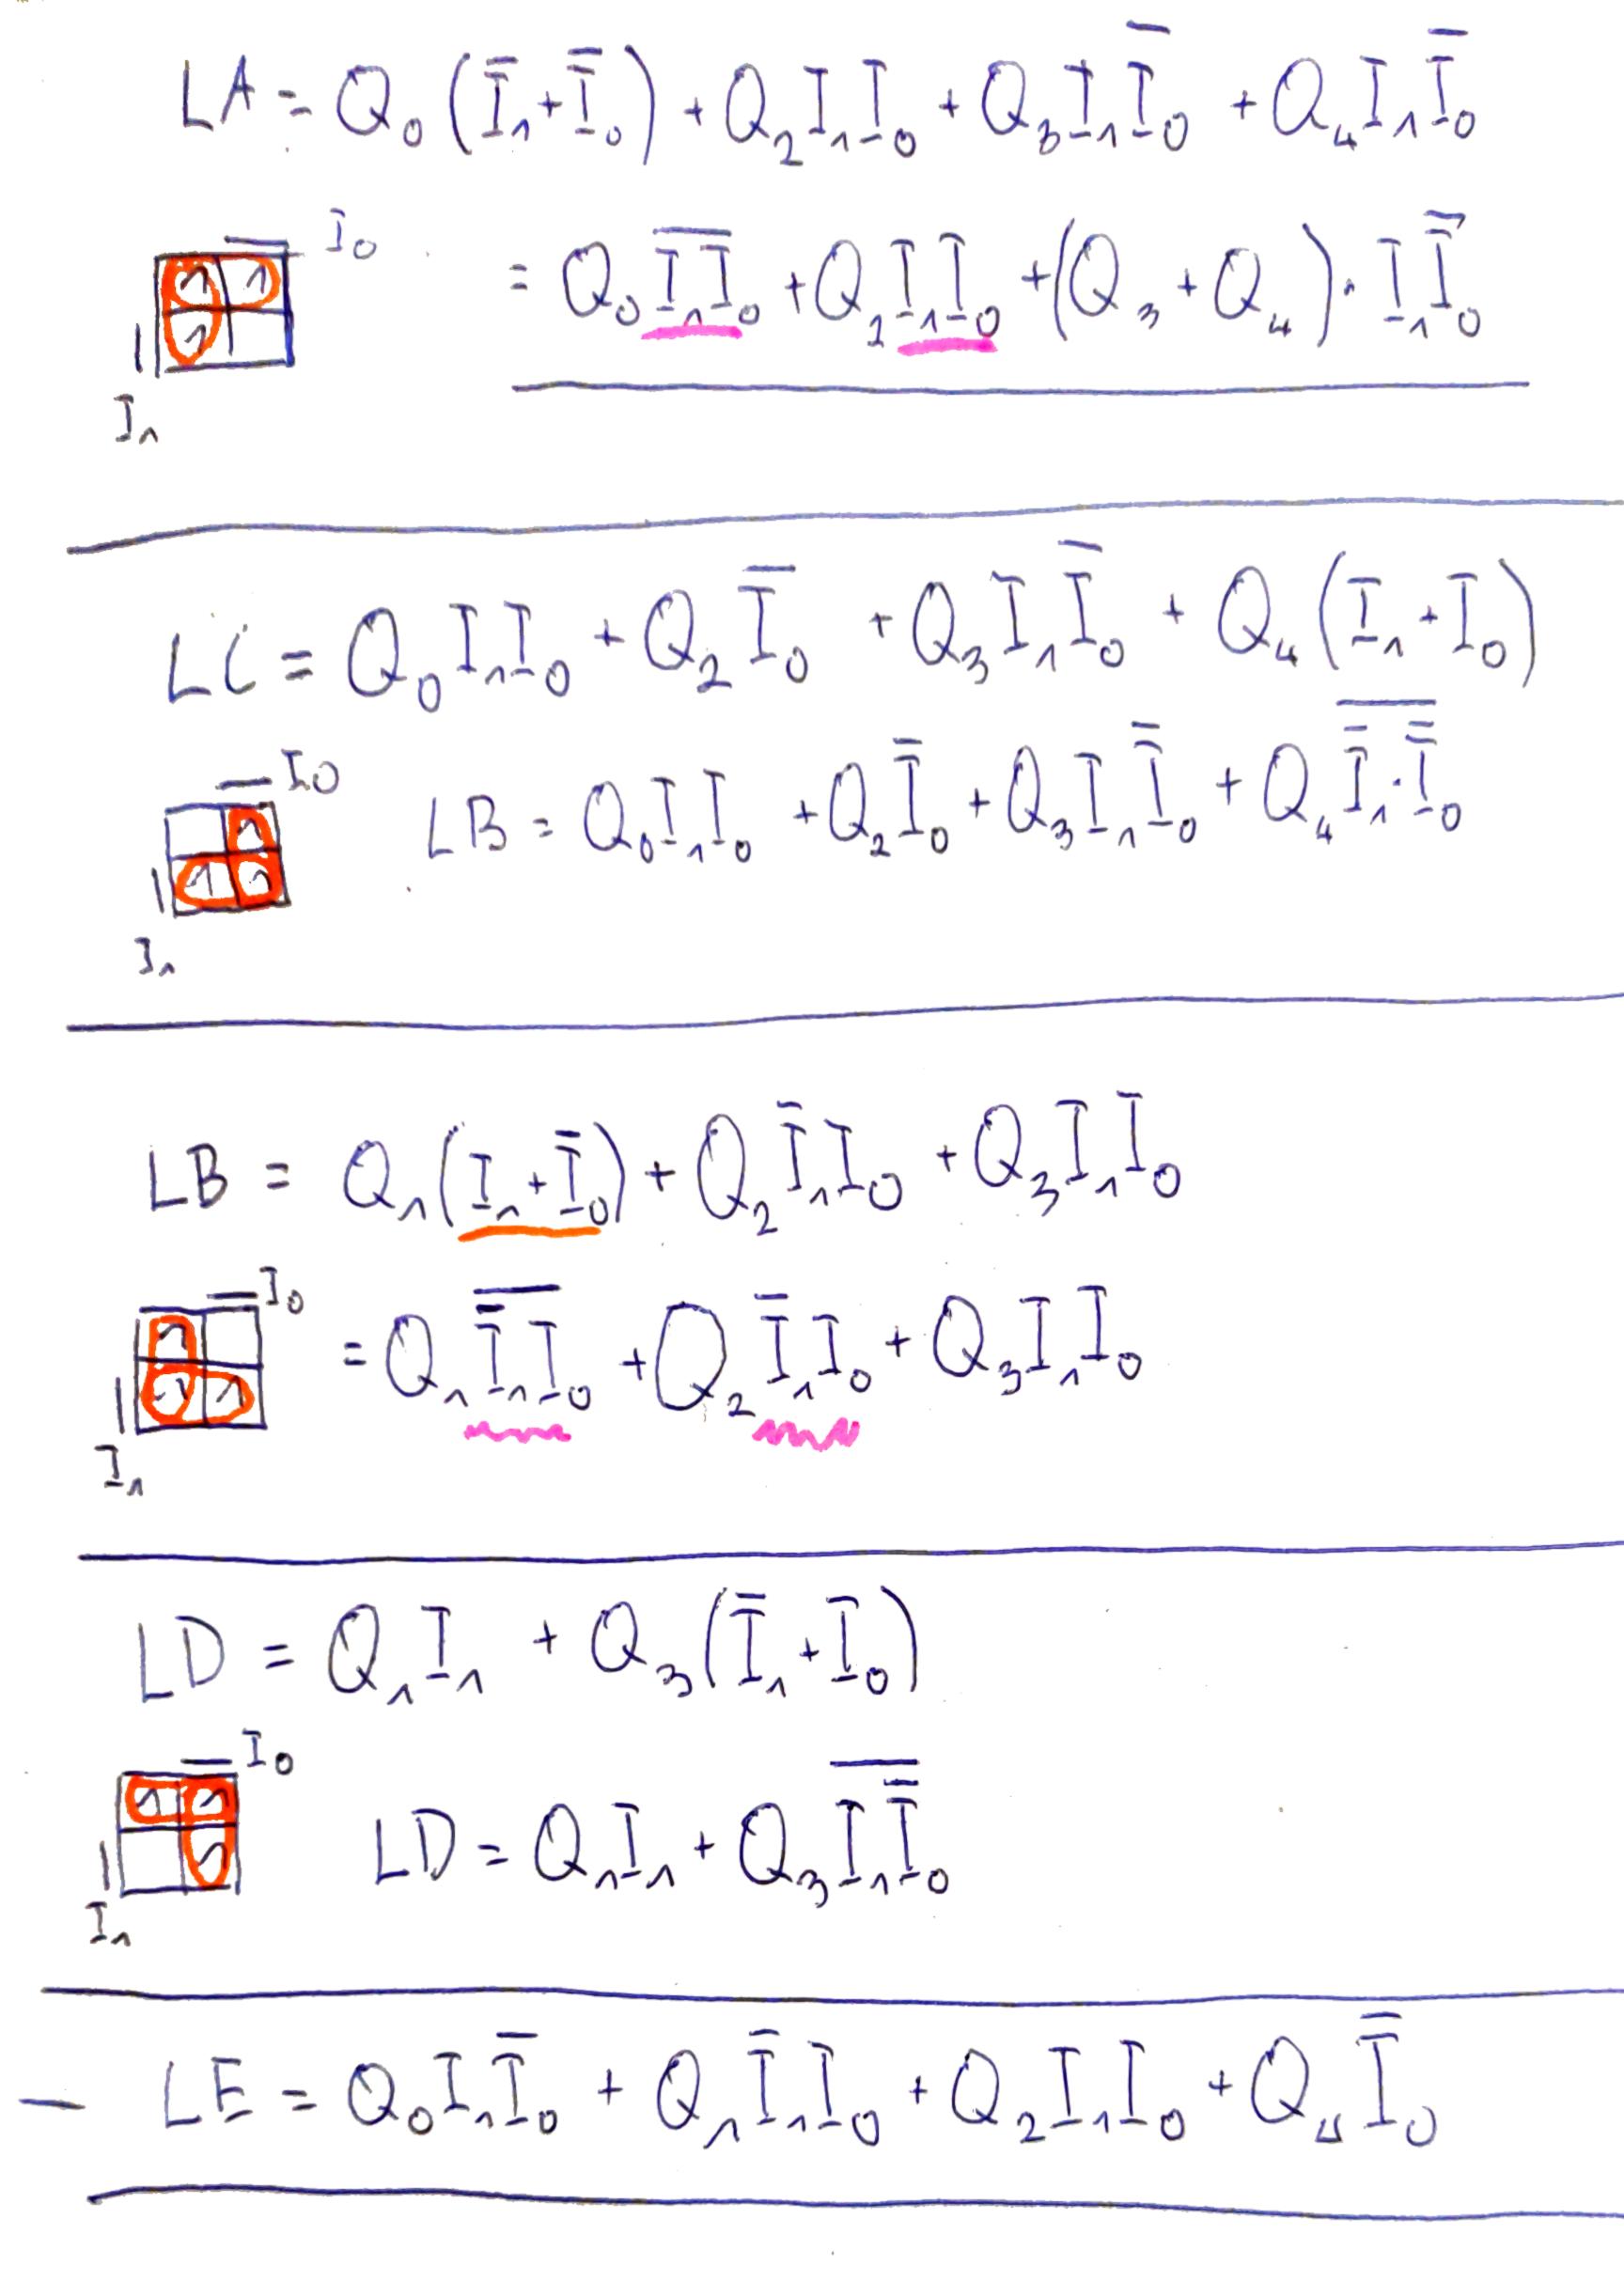 LA = Q₀(I̅₁+I̅₀) + Q₂I₁I₀ + Q₃I₁I̅₀ + Q₄I₁I̅₀
I₀
1 1
1
I₁
= Q₀\overline{I₁I₀} + Q₂I₁I₀ + (Q₃+Q₄)·I₁I̅₀
LC = Q₀I₁I₀ + Q₂I̅₀ + Q₃I₁I̅₀ + Q₄(I₁+I₀)
I₀
1
1 1
I₁
LB = Q₀I₁I₀ + Q₂I̅₀ + Q₃I₁I̅₀ + Q₄\overline{I̅₁·I̅₀}
LB = Q₁(I₁+I̅₀) + Q₂I̅₁I₀ + Q₃I₁I₀
I₀
1
1 1
I₁
= Q₁\overline{I̅₁I₀} + Q₂I̅₁I₀ + Q₃I₁I₀
LD = Q₁I₁ + Q₃(I̅₁+I₀)
I₀
1 1
1
I₁
LD = Q₁I₁ + Q₃\overline{I₁I̅₀}
— LE = Q₀I₁I̅₀ + Q₁I̅₁I₀ + Q₂I₁I₀ + Q₄I̅₀